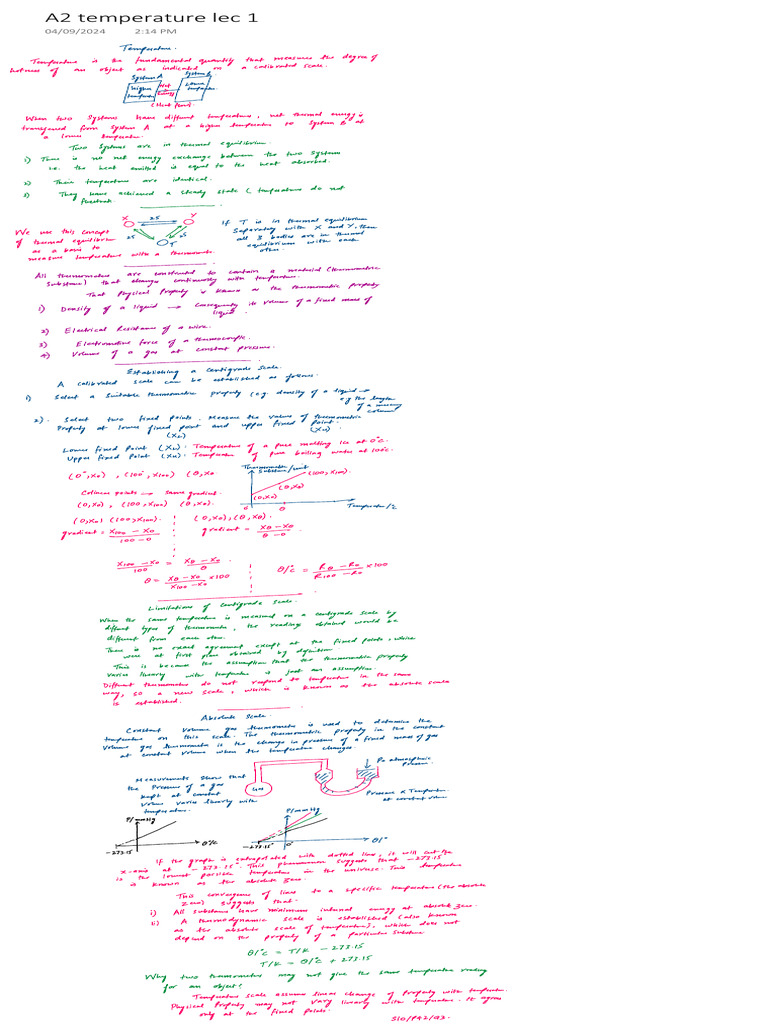 A2 temperature lec 1
04/09/2024 2:14 PM
Temperature.
Temperature is the fundamental quantity that measures the degree of
hotness of an object as indicated on a calibrated scale.
System A System B
higher temperature Net Energy Lower temperature
(Heat flows)
When two systems have different temperature, net thermal energy is
transferred from System A at a higher temperature to System B at
a lower temperature.
Two systems are in thermal equilibrium.
1) There is no net energy exchange between the two systems
i.e. the heat emitted is equal to the heat absorbed.
2) Their temperature are identical.
3) They have achieved a steady state (temperature do not
fluctuate.
X 25 Y
25 25
T
We use this concept
of thermal equilibrium
as a base to
measure temperature with a thermometer
If T is in thermal equilibrium
Separately with X and Y, then
all 3 bodies are in thermal
equilibrium with each
other.
All thermometers are constructed to contain a material (thermometric
substance) that change continuously with temperature.
That Physical Property is known as the thermometric property
1) Density of a liquid → Consequently its volume of a fixed mass of
liquid.
2) Electrical Resistance of a wire.
3) Electromotive force of a thermocouple.
4) Volume of a gas at constant pressure.
Establishing a Centigrade Scale.
A calibrated scale can be established as follows.
1) Select a suitable thermometric property (e.g. density of a liquid →
eg the length
of a mercury
column)
2). Select two fixed points. Measure the values of thermometric
Property at lower fixed point and upper fixed point.
(XL) (XU)
Lower fixed Point (XL): Temperature of a pure melting ice at 0°C.
Upper fixed Point (XU): Temperature of pure boiling water at 100°C.
(0°, X0) , (100°, X100) (θ, Xθ
Thermometric
Substance/unit
(100, X100)
(θ, Xθ)
(0, X0)
0 θ
Colinear points → same gradient.
(0, X0) , (100, X100) (θ, Xθ).
(0, X0) (100, X100) (0, X0), (θ, Xθ)
gradient = X100 − X0 / 100 − 0 gradient = Xθ − X0 / θ − 0
X100 − X0 / 100 = Xθ − X0 / θ
θ = Xθ − X0 / X100 − X0 × 100
θ/°C = Rθ − R0 / R100 − R0 × 100
Limitations of Centigrade Scale.
When the same temperature is measured on a centigrade scale by
different types of thermometer, the readings obtained would be
different from each other.
There is no exact agreement except at the fixed points, which
were at first place obtained by definition
This is because the assumption that the thermometric property
varies linearly with temperature is just an assumption.
Different thermometer do not respond to temperature in the same
way, so a new scale, which is known as the absolute scale
is established.
Absolute Scale.
Constant Volume gas thermometer is used to determine the
temperature on this scale. The thermometric property in the constant
Volume gas thermometer is the change in pressure of a fixed mass of gas
at constant volume when the temperature changes.
Measurements show that
the Pressure of a gas
kept at constant
Volume varies linearly with
temperature.
Gas
Po atmospheric
Pressure
Pressure ∝ Temperature
at constant volume
P/mmHg
−273.15 θ/°C
P/mmHg
−273.15° 0° θ/°
If the graph is extrapolated with dotted line, it will cut the
x-axis at −273.15°. This phenomenon suggests that −273.15
is the lowest possible temperature in the universe. This temperature
is known as the absolute zero.
This convergence of lines to a specific temperature (the absolute
zero) suggests that.
i) All substance have minimum internal energy at absolute zero.
ii) A thermodynamic scale is established (also known
as the absolute scale of temperature), which does not
depend on the property of a particular substance
θ/°C = T/K − 273.15
T/K = θ/°C + 273.15
Why two thermometers may not give the same temperature reading
for an object?
Temperature scale assume linear change of Property with temperature.
Physical Property may not vary linearly with temperature. It agrees
only at the fixed points.
S10/P42/Q3.